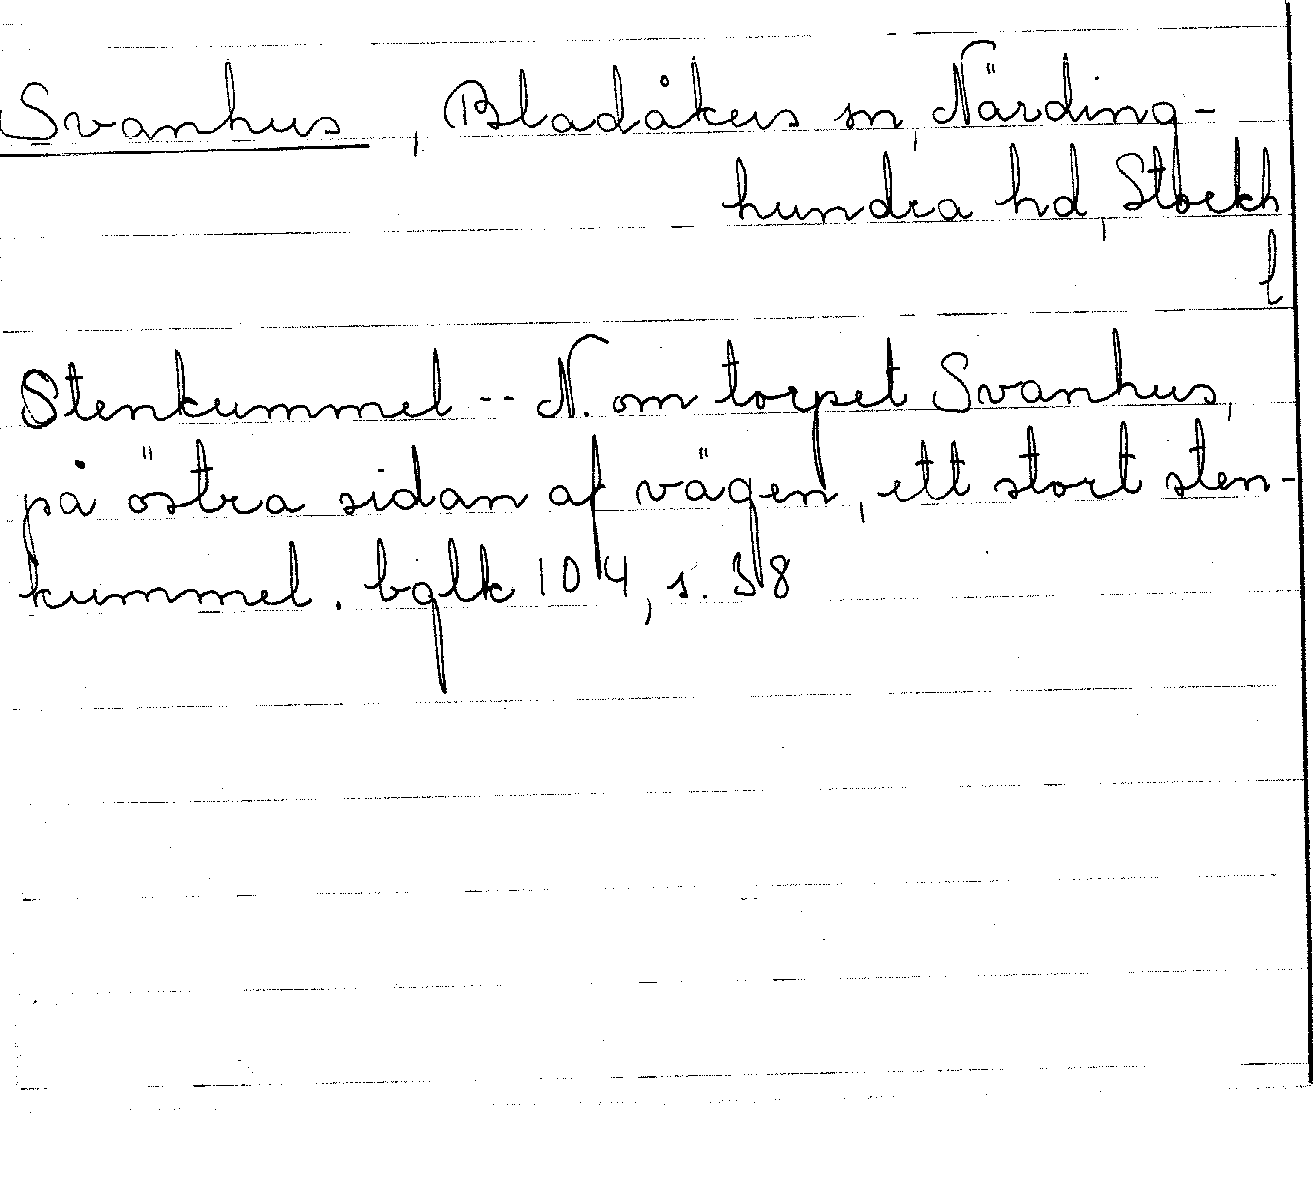 Svanhus, Bladåkers sn, Närding-
hundra hd, Stockh
l
Stenkummel -- N. om torpet Svanhus,
på östra sidan af vägen, ett stort sten-
kummel. bglk 104, s. 38